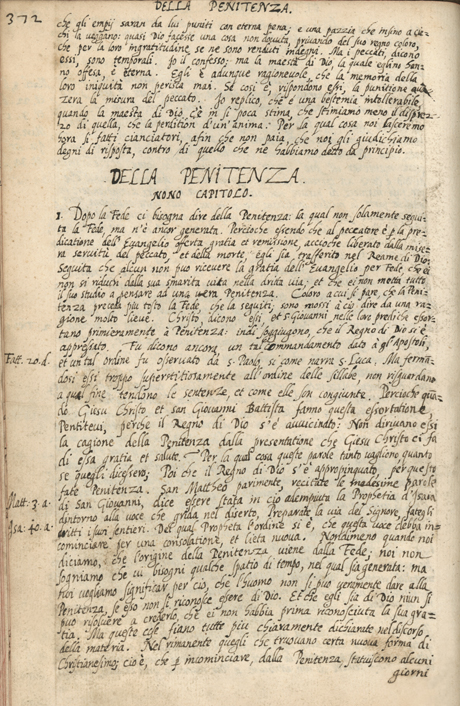 DELLA PENITENZA.
372
che gli empi saran da lui puniti con eterna pena; è una pazzia che insino a cie-
chi la veggano: quasi Dio facesse una cosa non dovuta, privando del suo regno coloro,
che per la loro ingratitudine, se ne son renduti indegni. Ma i peccati, dicono
essi, sono temporali. Io il confesso; ma la maestà di Dio, la quale eglino hen-
no offesa, è eterna. Egli è adunque ragionevole, che la memoria della
loro iniquità non perisca mai. Se così è, rispondono essi, la punitione avan-
zera la misura del peccato. Io replico, che è una bestemia intollerabile,
quando la maestà di Dio, c'è in si poca stima, che stimiamo meno il dispre-
zo di quella, che la perdition d'un'anima. Per la qual cosa noi lasceremo
hora si fatti cianciatori, affin che non paia, che noi gli giudichiamo
degni di risposta, contro di quello che ne habbiamo detto da principio.
DELLA PENITENZA.
NONO CAPITOLO.
1. Dopo la Fede ci bisogna dire della Penitenza: la qual non solamente seguita
ta la Fede, ma n'è ancor generata. Percioche essendo che al peccatore è p la pre-
dicatione dell'Evangelio offerta gratia et remissione, accioche liberato dalla mise-
ra servitù del peccato, et della morte, egli sia trasferito nel Reame di Dio;
Seguita che alcun non puo ricevere la gratia dell'Evangelio per Fede, che ei
non si riduca dalla sua smarita vita nella dritta via; et che ei non metta tutto
il suo studio a pensare ad una vera Penitenza. Coloro a cui si pare, che la Peni-
tenza preceda piu tosto la Fede, che la seguiti; sono mossi a ciò dire da una ra-
gione molto lieve. Christo, dicono essi, et S. Giovanni nelle loro prediche esor-
tano primieramente à Penitenza: indi soggiugono, che il Regno di Dio si è
appressato. Fu dicono ancora, un tal commandamento dato à gl'Apostoli,
Fatt. 20. d.
et un tal ordine fu osservato da S. Paolo, si come narra S. Luca. Ma ferman-
dosi essi troppo superstitiosamente all'ordine delle sillabe, non risguardano
a qual fine tendono le sentenze, et come elle son congiunte. Percioche quan-
do Giesu Christo, et san Giovanni Battista fanno questa essortatione,
Pentitevi, perche il Regno di Dio s'è avvicinato: Non dirivano essi
la cagione della Penitenza dalla presentatione che Giesu Christo ci fa
di essa gratia et salute. Per la qual cosa queste parole tanto vagliono quanto
se quegli dicessero; Poi che il Regno di Dio s'è appropinquato, per questo
fate Penitenza. San Mattheo parimente, recitate le medesime parole
Matt. 3. a.
di San Giovanni, dice essere stata in ciò adempiuta la Prophetia d'Isaia
Isa: 40. a.
dintorno alla voce che grida nel diserto, Preparate la via del Signore, fategli
dritti i suoi sentieri. Del qual Propheta l'ordine si è, che questa voce debba in-
cominciare per una consolatione, et lieta nuova. Nondimeno quando noi
diciamo, che l'origine della Penitenza viene dalla Fede; noi non
sogniamo che ci bisogni qualche spatio di tempo, nel qual sia generata: ma
noi vogliamo significar per ciò, che l'huomo non si può veramente dare alla
Penitenza, se esso non si riconosce essere di Dio. Et che egli sia di Dio niun si
può risolvere a crederlo, che ei non habbia prima riconosciuta la sua gra-
tia. Ma queste cose fiano tutte piu chiaramente dichiarate nel discorso,
della materia. Nel rimanente quegli che truovano certa nuova forma di
Christianesimo; cio è, che p incominciare, dalla Penitenza, statuiscono alcuni
giorni